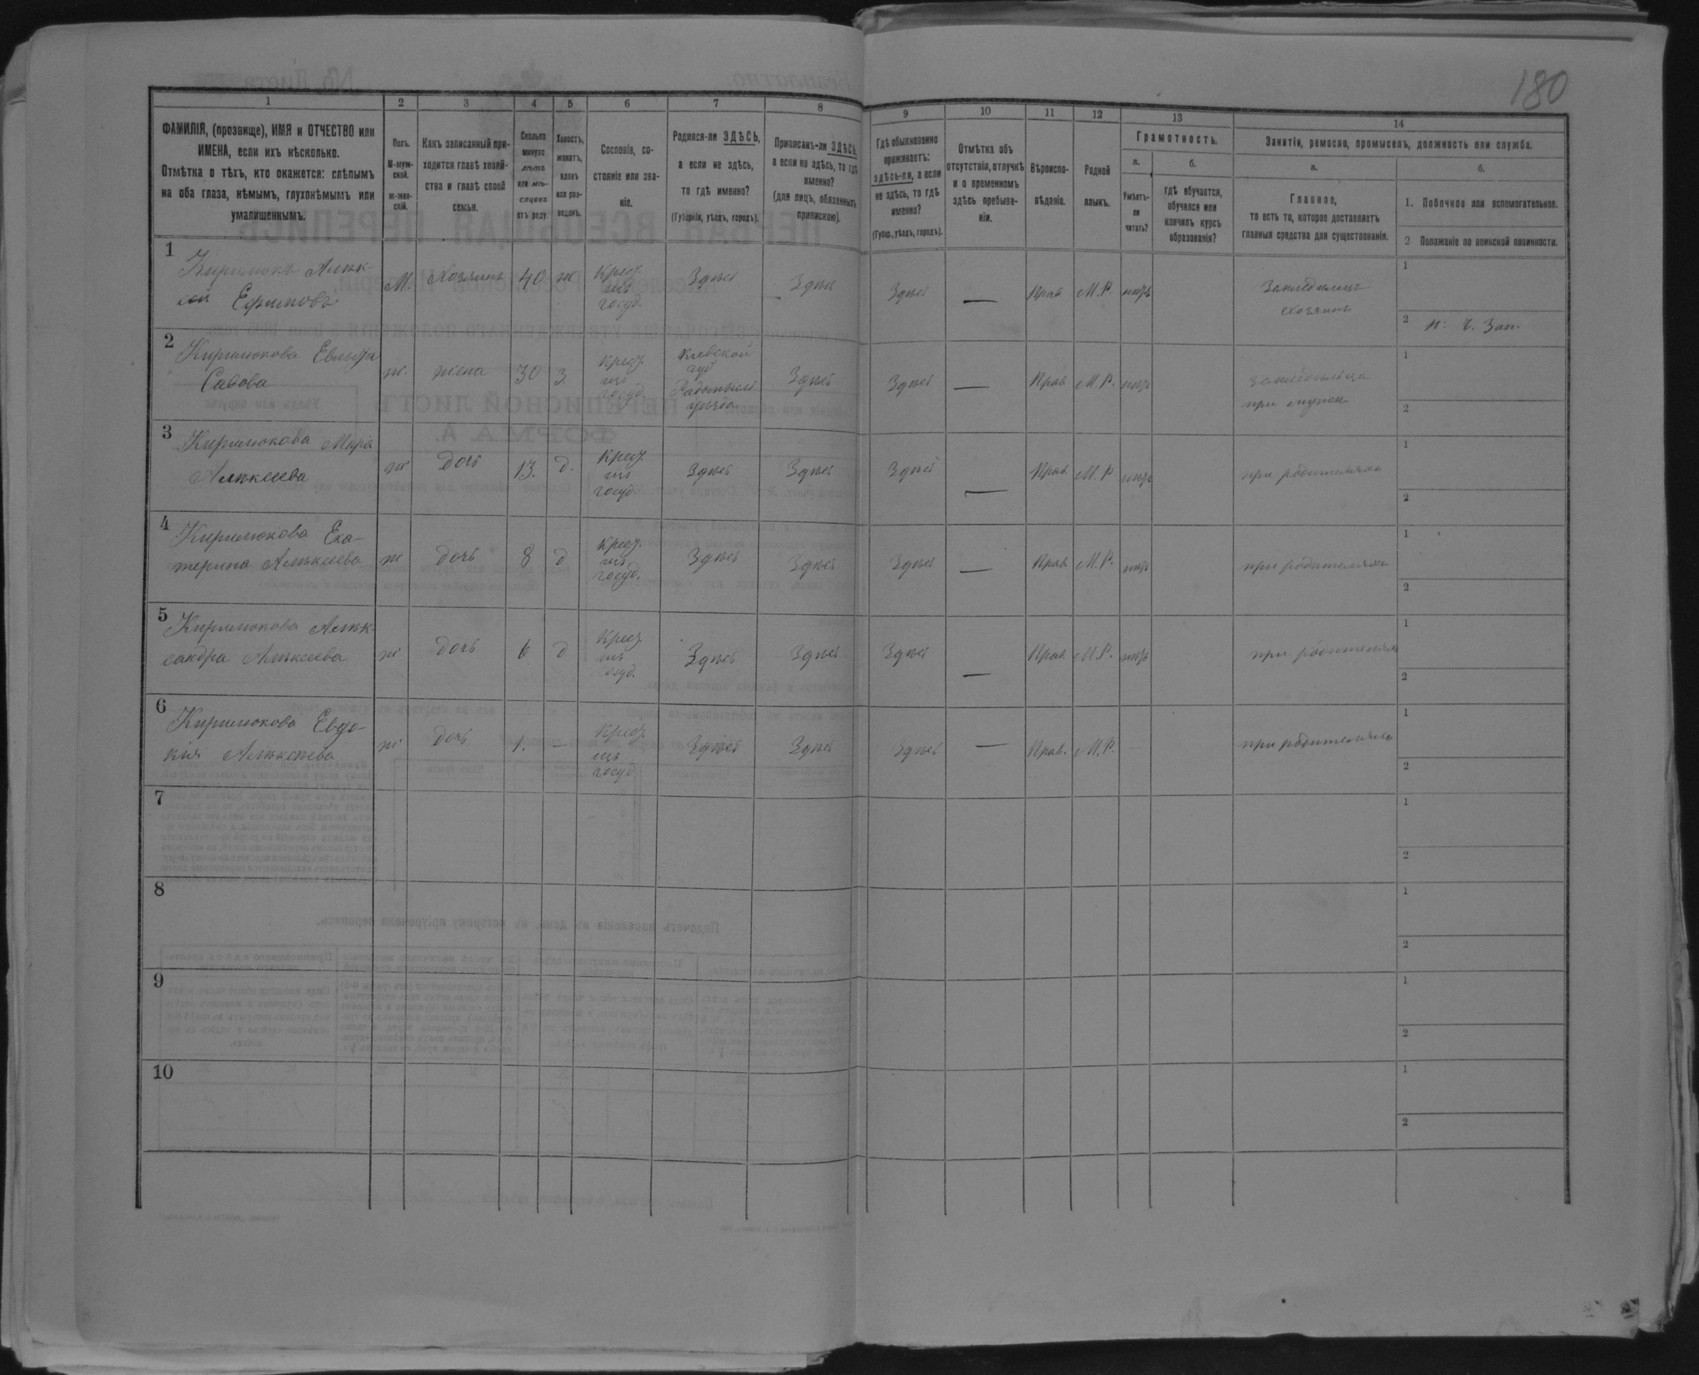 180
1 2 3 4 5 6 7 8 9 10 11 12 13 14
ФАМИЛІЯ, (прозвище), ИМЯ и ОТЧЕСТВО или
ИМЕНА, если ихъ нѣсколько.
Отмѣтка о тѣхъ, кто окажется: слѣпымъ
на оба глаза, нѣмымъ, глухонѣмымъ или
умалишеннымъ.
Полъ.
М-муж-
ской.
ж-жен-
скій.
Какъ записанный при-
ходится главѣ хозяй-
ства и главѣ своей
семьи.
Сколько
минуло
лѣтъ
или мѣ-
сяцевъ
отъ роду.
Холостъ,
женатъ,
вдовъ
или раз-
веденъ.
Сословіе, со-
стояніе или зва-
ніе.
Родился-ли ЗДѢСЬ,
а если не здѣсь,
то гдѣ именно?
(Губернія, уѣздъ, городъ).
Приписанъ-ли ЗДѢСЬ,
а если не здѣсь, то гдѣ
именно?
(для лицъ, обязанныхъ
припискою).
Гдѣ обыкновенно
проживаетъ:
здѣсь-ли, а если
не здѣсь, то гдѣ
именно?
(Губер., уѣздъ, городъ).
Отмѣтка объ
отсутствіи, отлучкѣ
и о временномъ
здѣсь пребыва-
ніи.
Вѣроиспо-
вѣданіе.
Родной
языкъ.
Грамотность.
а.
Умѣетъ-
ли
читать?
б.
гдѣ обучается,
обучался или
кончилъ курсъ
образованія?
Занятіе, ремесло, промыселъ, должность или служба.
а.
Главное,
то есть то, которое доставляетъ
главныя средства для существованія.
б.
1. Побочное или вспомогательное.
2 Положеніе по воинской повинности.
1
Кирилюкъ Алек-
сѣй Ефимовъ
М. Хозяинъ 40 ж
Крест.
изъ
госуд.
Здѣсь Здѣсь Здѣсь — Прав М.Р. нѣтъ
Земледѣлецъ
хозяинъ
1
2
2
Кирилюкова
Савова
ж. жена 30 з
Крест.
изъ
госуд.
Кіевской
губ
Радомысл
уѣзда
Здѣсь Здѣсь — Прав М.Р. нѣтъ
при мужѣ
1
2
3
Кирилюкова
Алексеева
ж дочь 13. д.
Крест.
изъ
госуд.
Здѣсь Здѣсь Здѣсь — Прав М.Р. нѣтъ
при родителяхъ
1
2
4
Кирилюкова Ека-
терина Алексеева
ж дочь 8 д
Крест.
изъ
госуд.
Здѣсь Здѣсь Здѣсь — Прав М.Р. нѣтъ
при родителяхъ
1
2
5
Кирилюкова Алек-
сандра Алексеева
ж дочь 6 д
Крест.
изъ
госуд.
Здѣсь Здѣсь Здѣсь — Прав М.Р. нѣтъ
при родителях
1
2
6
Кирилюкова Евдо-
кія Алексеева
ж дочь 1. —
Крест.
изъ
госуд
Здѣсь Здѣсь Здѣсь — Прав. М.Р. —
при родителяхъ
1
2
7
1
2
8
1
2
9
1
2
10
1
2